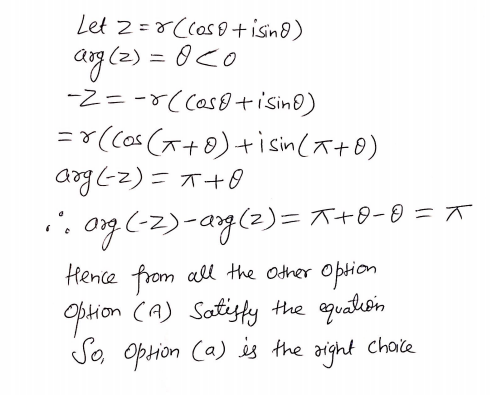 Let z = r(cosθ + isinθ)
arg(z) = θ < 0
-z = -r(cosθ + isinθ)
= r(cos(π+θ) + isin(π+θ)
arg(-z) = π+θ
∴ arg(-z) - arg(z) = π+θ-θ = π
Hence from all the other option
option (A) Satisfy the equation
So, option (a) is the right choice